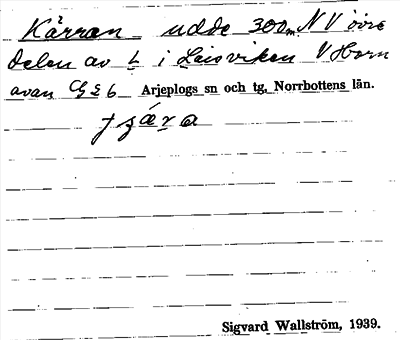 Kärran udde 300m NV övre
delen av L i Laisviken V Horn
avan G 5 6 Arjeplogs sn och tg, Norrbottens län.
Sigvard Wallström, 1939.